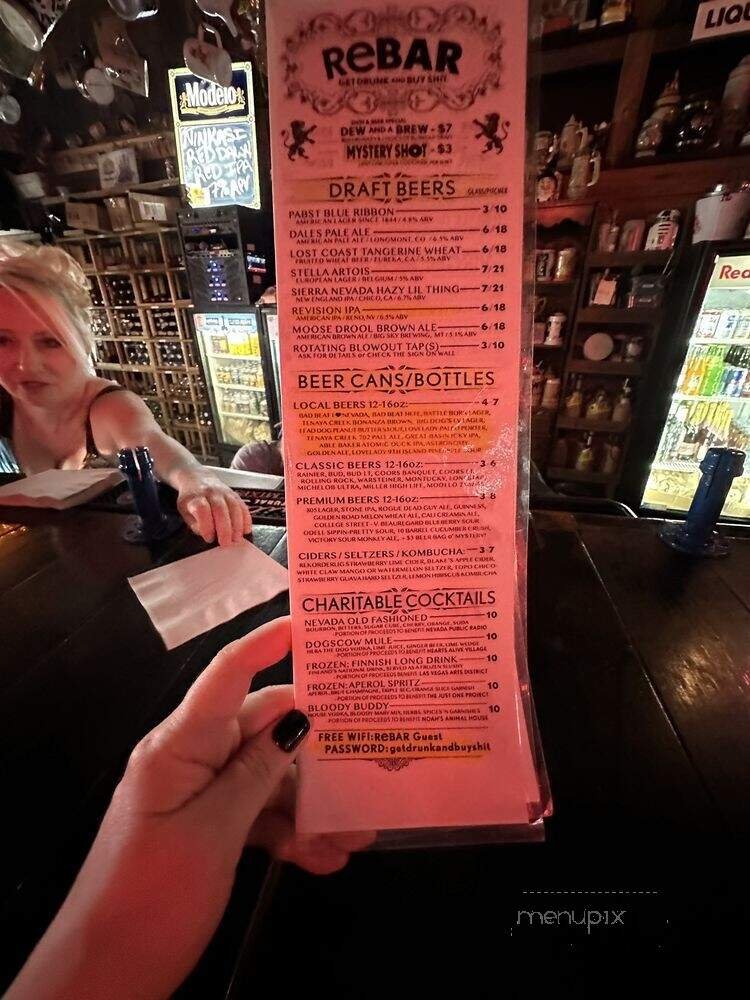 LIQU
Modelo
NINKASI
RED DAWN
RED IPA
7% ABV
Rea
ReBAR
GET DRUNK AND BUY SHIT
SHOT & BEER SPECIAL
DEW AND A BREW - $7
MYSTERY SHOT - $3
DRAFT BEERS GLASS/PITCHER
PABST BLUE RIBBON 3/10
AMERICAN LAGER SINCE 1844 / 4.8% ABV
DALES PALE ALE 6/18
AMERICAN PALE ALE / LONGMONT, CO / 6.5% ABV
LOST COAST TANGERINE WHEAT 6/18
FRUITED WHEAT BEER / EUREKA, CA / 5.5% ABV
STELLA ARTOIS 7/21
EUROPEAN LAGER / BELGIUM / 5% ABV
SIERRA NEVADA HAZY LIL THING 7/21
NEW ENGLAND IPA / CHICO, CA / 6.7% ABV
REVISION IPA 6/18
AMERICAN IPA / RENO, NV / 6.5% ABV
MOOSE DROOL BROWN ALE 6/18
AMERICAN BROWN ALE / BIG SKY BREWING, MT / 5.1% ABV
ROTATING BLOWOUT TAP(S) 3/10
ASK FOR DETAILS or CHECK THE SIGN ON WALL
BEER CANS/BOTTLES
LOCAL BEERS 12-16oz: 4-7
BAD BEAT I ♥ NEVADA, BAD BEAT HEFE, BATTLE BORN LAGER,
TENAYA CREEK BONANZA BROWN, BIG DOG'S LAGER,
LEAD DOG PEANUT BUTTER STOUT, LOVELADY PALEO PORTER,
TENAYA CREEK 702 PALE ALE, GREAT BASIN ICKY IPA,
ABLE BAKER ATOMIC DUCK IPA, ASTRONOMY
GOLDEN ALE, LOVELADY 9TH ISLAND PINEAPPLE SOUR
CLASSIC BEERS 12-16oz: 3-6
RAINIER, BUD, BUD LT, COORS BANQUET, COORS LT,
ROLLING ROCK, WARSTEINER, MONTUCKY, LONE STAR,
MICHELOB ULTRA, MILLER HIGH LIFE, MODELO
PREMIUM BEERS 12-16oz: 8
805 LAGER, STONE IPA, ROGUE DEAD GUY ALE, GUINNESS,
GOLDEN ROAD MELON WHEAT ALE, CALI CREAMIN ALE,
COLLEGE STREET - V. BEAUREGARD BLUEBERRY SOUR
ODELL SIPPIN-PRETTY SOUR, 10 BARREL CUCUMBER CRUSH,
VICTORY SOUR MONKEY ALE, + $3 BEER BAG o' MYSTERY!
CIDERS / SELTZERS / KOMBUCHA: 3-7
REKORDERLIG STRAWBERRY LIME CIDER, BLAKE'S APPLE CIDER,
WHITE CLAW MANGO OR WATERMELON SELTZER, TOPO CHICO
STRAWBERRY GUAVA HARD SELTZER, LEMON HIBISCUS KOMBUCHA
CHARITABLE COCKTAILS
NEVADA OLD FASHIONED 10
BOURBON, BITTERS, SUGAR CUBE, CHERRY, ORANGE, SODA
-PORTION OF PROCEEDS TO BENEFIT NEVADA PUBLIC RADIO
DOGSCOW MULE 10
HERA THE DOG VODKA, LIME JUICE, GINGER BEER, LIME WEDGE
-PORTION OF PROCEEDS TO BENEFIT HEARTS ALIVE VILLAGE
FROZEN: FINNISH LONG DRINK 10
FINLAND'S NATIONAL DRINK, SERVED AS A FROZEN SLUSHY
-PORTION OF PROCEEDS BENEFIT LAS VEGAS ARTS DISTRICT
FROZEN: APEROL SPRITZ 10
APEROL, BRUT CHAMPAGNE, TRIPLE SEC, ORANGE SLICE GARNISH
-PORTION OF PROCEEDS TO BENEFIT THE JUST ONE PROJECT
BLOODY BUDDY 10
HOUSE VODKA, BLOODY MARY MIX, HERBS, SPICES 'N GARNISHES
-PORTION OF PROCEEDS TO BENEFIT NOAH'S ANIMAL HOUSE
FREE WIFI: ReBAR Guest
PASSWORD: getdrunkandbuyshit
menupix